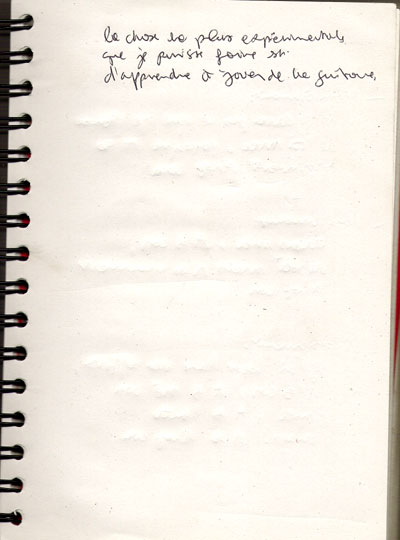 la chose la plus expérimentale
que je puisse faire est
d'apprendre à jouer de la guitare.